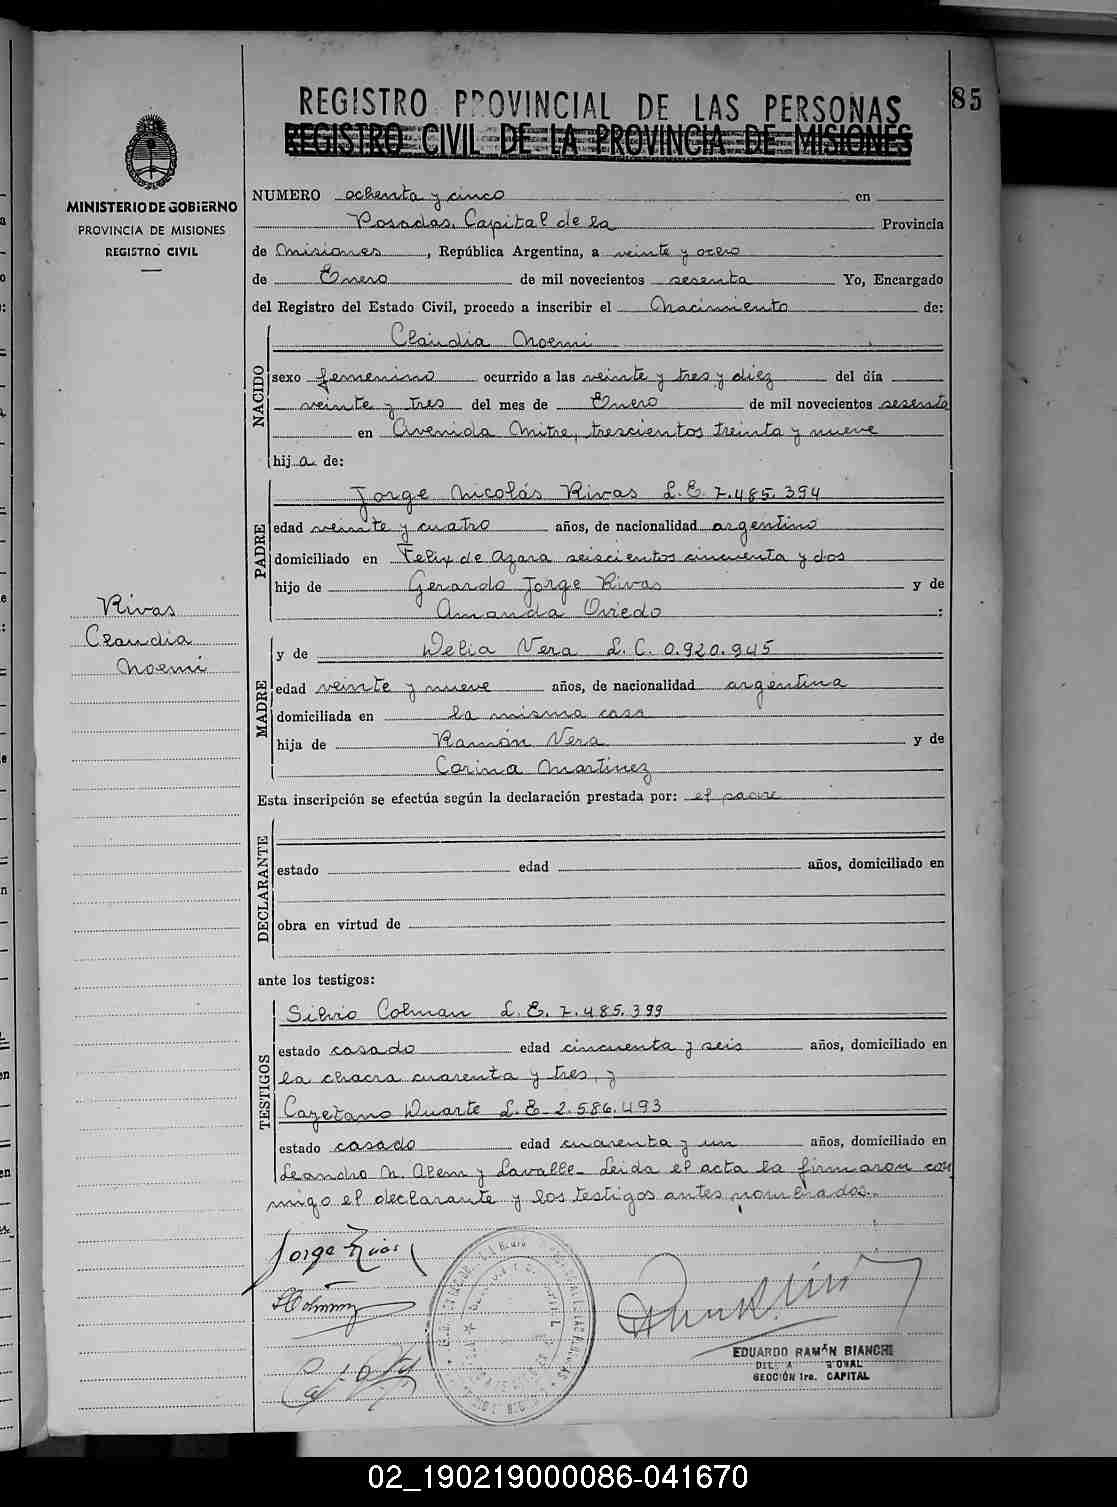 REGISTRO PROVINCIAL DE LAS PERSONAS
85
REGISTRO CIVIL DE LA PROVINCIA DE MISIONES
MINISTERIO DE GOBIERNO
PROVINCIA DE MISIONES
REGISTRO CIVIL
NUMERO ochenta y cinco en
Posadas, Capital de la Provincia
de Misiones, República Argentina, a veinte y ocho
de Enero de mil novecientos sesenta Yo, Encargado
del Registro del Estado Civil, procedo a inscribir el Nacimiento de:
NACIDO
Claudia Noemi
sexo femenino ocurrido a las veinte y tres y diez del día
veinte y tres del mes de Enero de mil novecientos sesenta
en Avenida Mitre, trescientos treinta y nueve
hija de:
PADRE
Jorge Nicolás Rivas L.E. 7.485.394
edad veinte y cuatro años, de nacionalidad argentino
domiciliado en Felix de Azara seiscientos cincuenta y dos
hijo de Gerardo Jorge Rivas y de
Amanda Oviedo :
Rivas
Claudia
Noemi
MADRE
y de Delia Vera L.C. 0.920.945
edad veinte y nueve años, de nacionalidad argentina
domiciliada en la misma casa
hija de Ramón Vera y de
Corina Martinez
Esta inscripción se efectúa según la declaración prestada por: el padre
DECLARANTE
estado edad años, domiciliado en
obra en virtud de
ante los testigos:
TESTIGOS
Silvio Colman L.E. 7.485.399
estado casado edad cincuenta y seis años, domiciliado en
la chacra cuarenta y tres, y
Cayetano Duarte L.E. 2.586.493
estado casado edad cuarenta y un años, domiciliado en
Leandro N. Alem y Lavalle- Leida el acta la firmaron con
migo el declarante y los testigos antes nombrados.-
Jorge Rivas
EDUARDO RAMÓN BIANCHI
SECCIÓN 1ra. CAPITAL
02_190219000086-041670